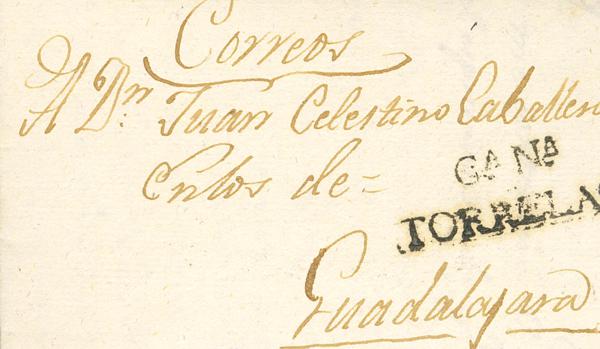 Correos
A Dn. Juan Celestino Caballero
en los de=
GA NA
TORRELA
Guadalajara